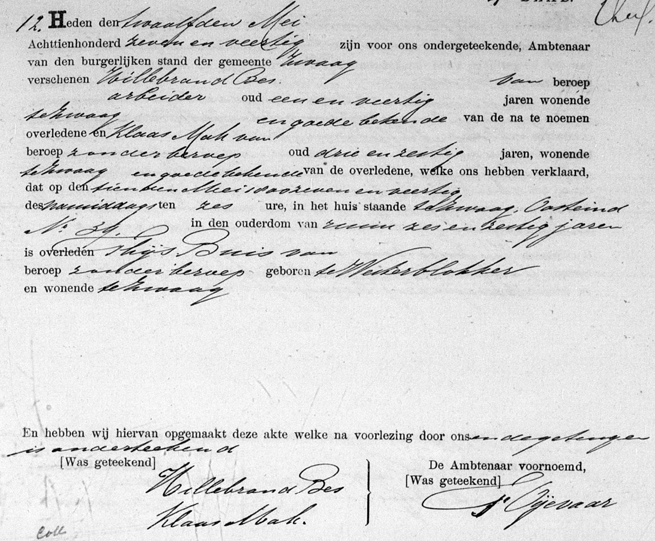 12. Heden den twaalfden Mei
Achttienhonderd zeven en veertig zijn voor ons ondergeteekende, Ambtenaar
van den burgerlijken stand der gemeente Zwaag
verschenen Hillebrand Bes van beroep
arbeider oud een en veertig jaren wonende
te Zwaag en goede bekende van de na te noemen
overledene en Klaas Mak van
beroep zonder beroep oud drie en zestig jaren, wonende
te Zwaag en goede bekende van de overledene, welke ons hebben verklaard,
dat op den tienden Mei dezes zeven en veertig
des namiddags ten zes ure, in het huis staande te Zwaag, Oosteind
No. 34. in den ouderdom van ruim zes en zestig jaren
is overleden Thijs Buis van
beroep zonder beroep geboren te Westerblokker
en wonende te Zwaag
En hebben wij hiervan opgemaakt deze akte welke na voorlezing door ons en de getuigen
is onderteekend
[Was geteekend] De Ambtenaar voornoemd,
Hillebrand Bes [Was geteekend]
Klaas Mak.
Coll